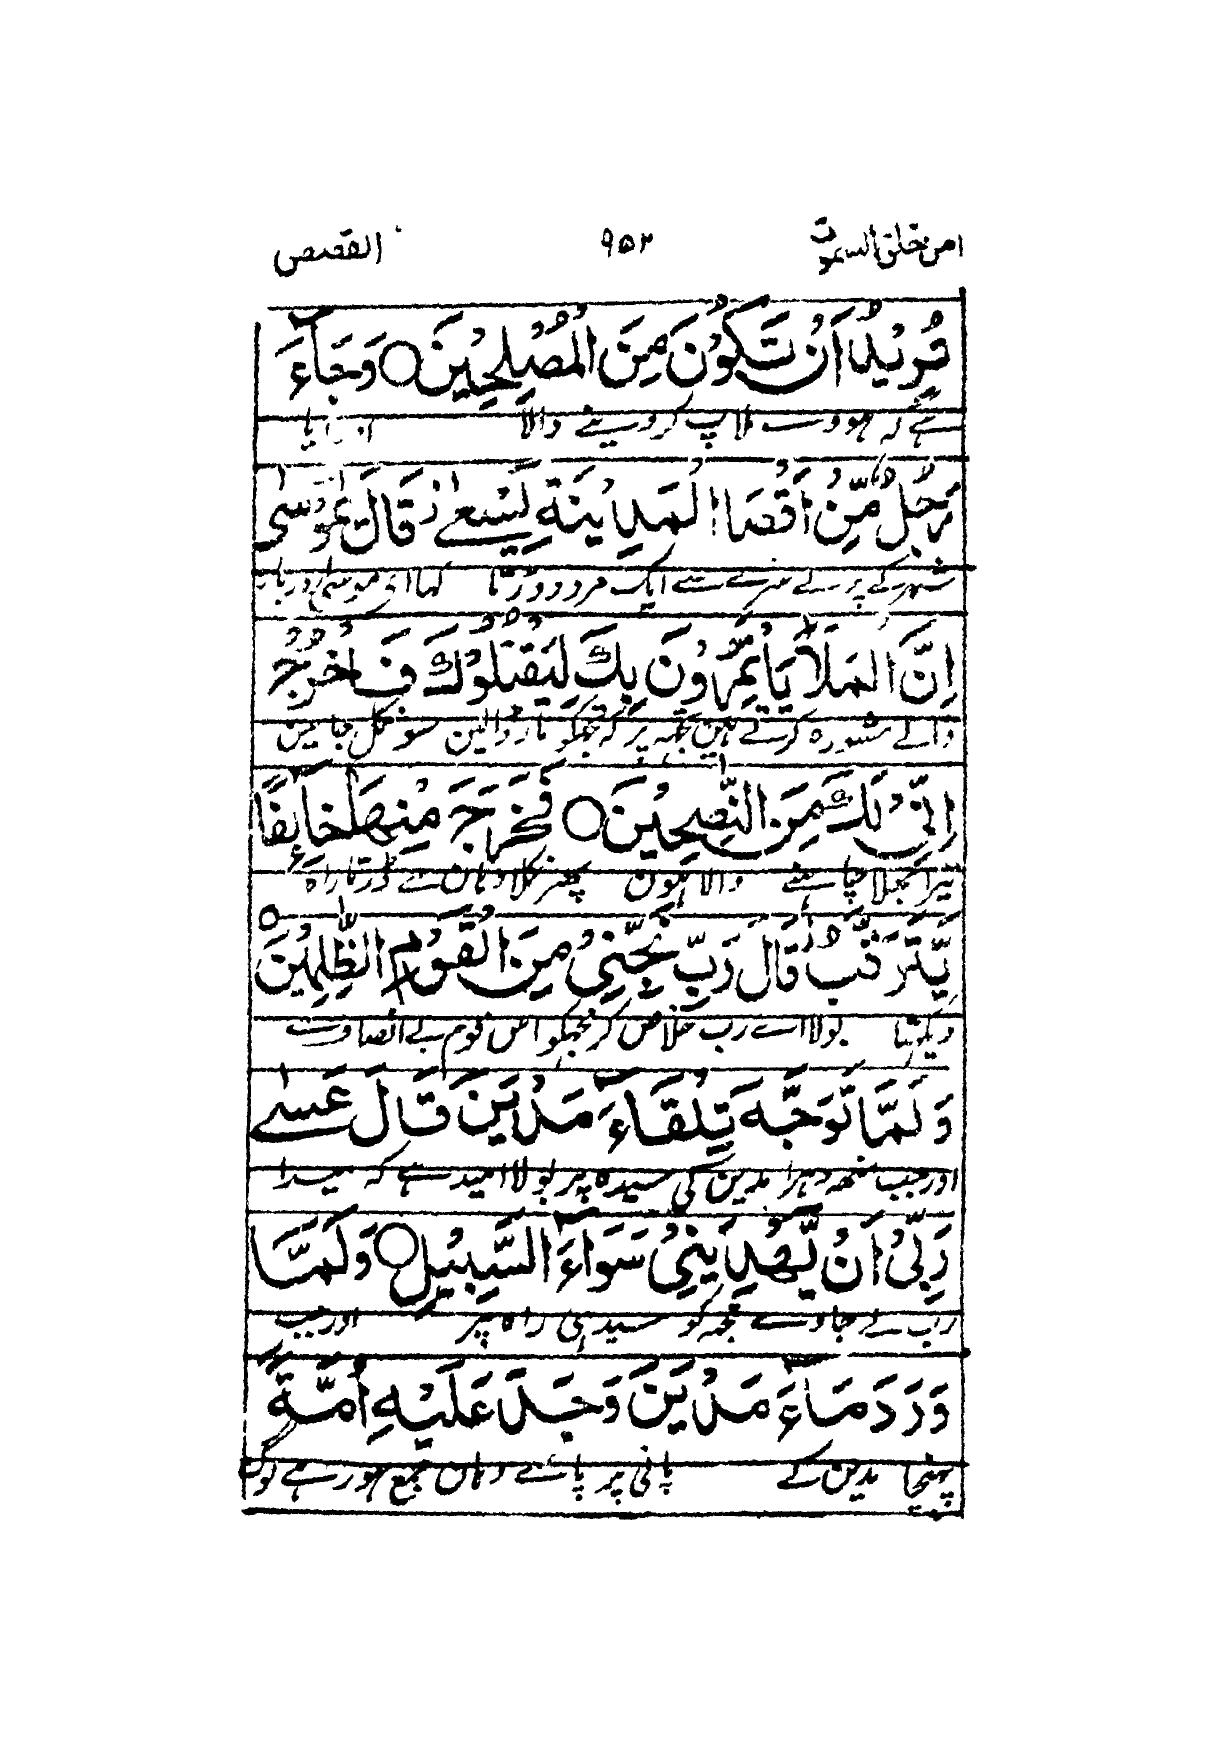 امن خلق السموت ۹۵۲ القصص
تُرِيْدُ اَنْ تَكُوْنَ مِنَ الْمُصْلِحِيْنَ ○ وَجَآءَ
ہے کہ ہووے ملاپ کر دینے والا اور آیا
رَجُلٌ مِّنْ اَقْصَا الْمَدِيْنَةِ يَسْعٰى ز قَالَ يٰمُوْسٰٓى
شہر کے پرلے سرے سے ایک مرد دوڑتا کہا اے موسیٰ دربار
اِنَّ الْمَلَاَ يَاْتَمِرُوْنَ بِكَ لِيَقْتُلُوْكَ فَاخْرُجْ
والے مشورہ کرتے ہین تجھ پر کہ تجھکو مار ڈالین سو نکل جا مین
اِنِّىْ لَكَ مِنَ النّٰصِحِيْنَ ○ فَخَرَجَ مِنْهَا خَآئِفًا
تیرا بھلا چاہنے والا ہون پھر نکلا وہان سے ڈرتا راہ
يَّتَرَقَّبُ ز قَالَ رَبِّ نَجِّنِىْ مِنَ الْقَوْمِ الظّٰلِمِيْنَ ○
دیکھتا بولا اے رب خلاص کر مجھکو اس قوم بے انصاف سے
وَلَمَّا تَوَجَّهَ تِلْقَآءَ مَدْيَنَ قَالَ عَسٰى
اور جب منھ دھرا مدین کی سیدھ پر بولا امید ہے کہ میرا
رَبِّىْ اَنْ يَّهْدِيَنِىْ سَوَآءَ السَّبِيْلِ ○ وَلَمَّا
رب لے جاوے مجھ کو سیدھی راہ پر اور جب
وَرَدَ مَآءَ مَدْيَنَ وَجَدَ عَلَيْهِ اُمَّةً
پہنچا مدین کے پانی پر پائے وہان جمع ہو رہے لوگ